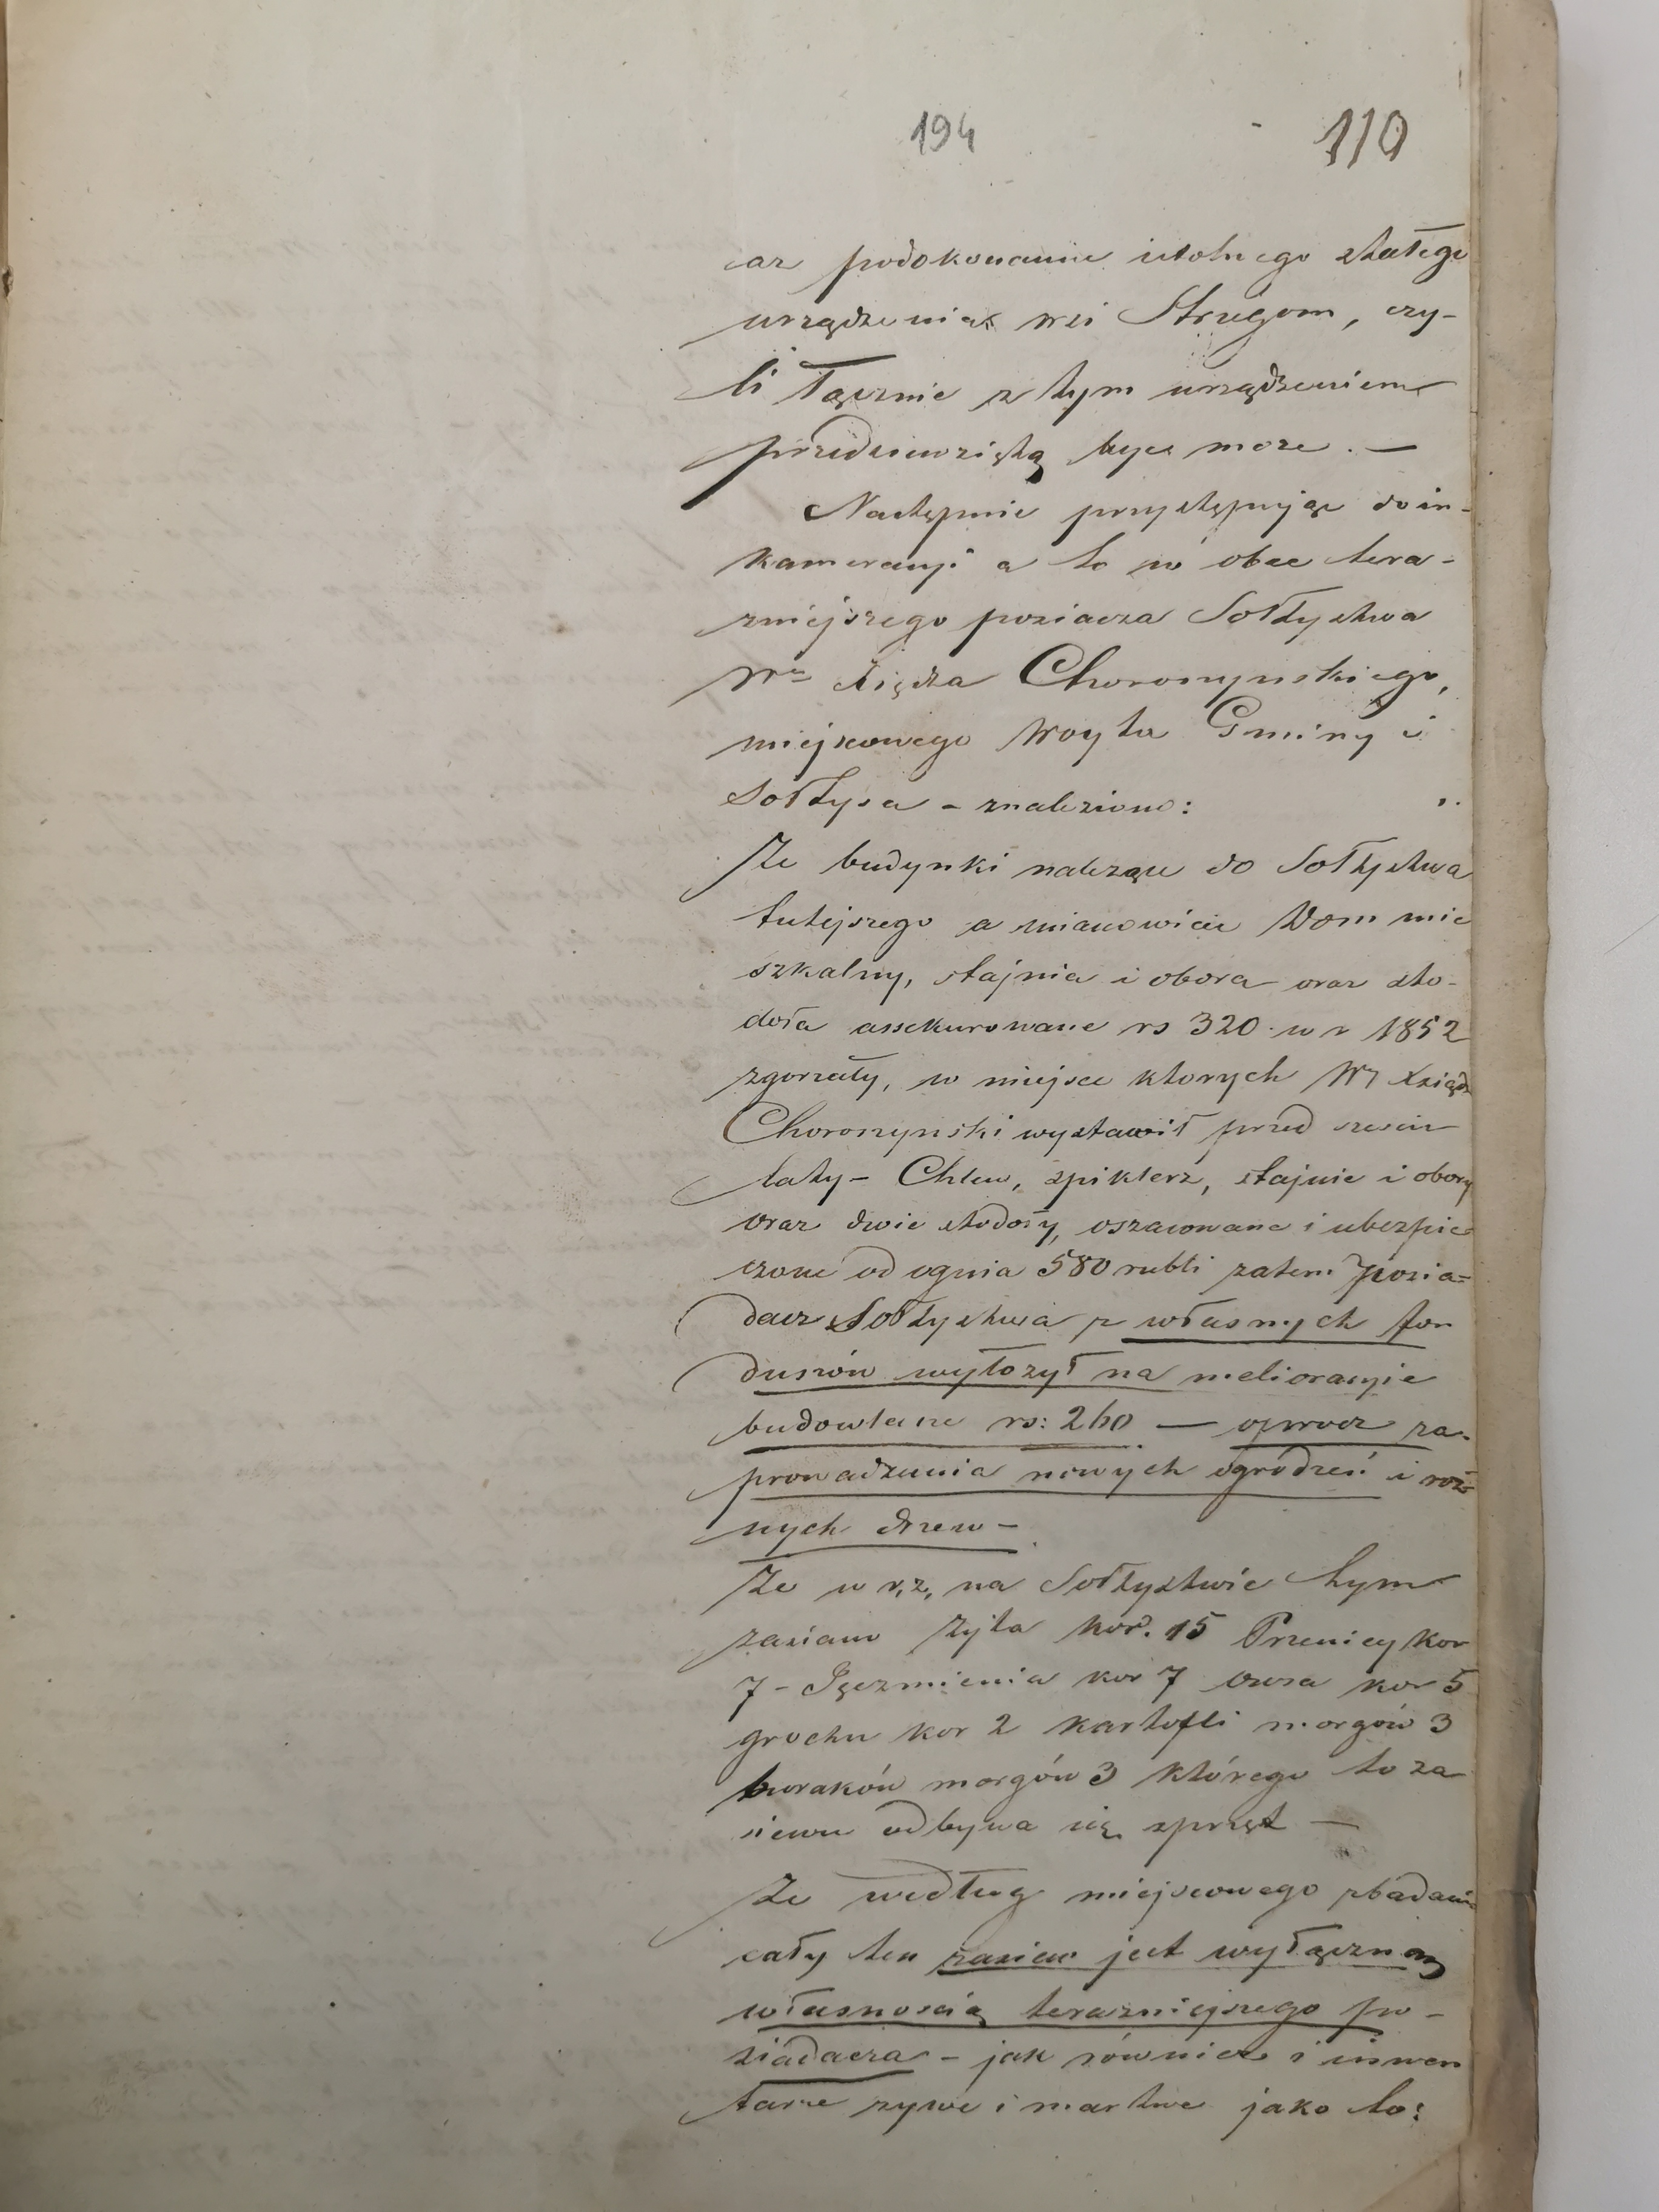 194
110
az podokonaniu istotnego stałego
urządzenia wsi Strugom, czy-
li łącznie z tym urządzeniem
przedsiewziętą być może. —
Następnie przystępując do in-
kameracyi a to w obec tera-
zniejszego posiacza Sołtystwa
Wo Xiędza Choroszynskiego,
miejscowego Woyta Gminy i
Sołtysa - znaleziono:
Ze budynki należące do Sołtystwa
tutejszego a mianowicie Dom mie
szkalny, stajnia i obora oraz sto-
doła assekurowane rs 320 w r 1852
zgorzały, w miejsce ktorych W Xsiądz
Choroszynski wystawił przed szesciu
laty - Chlew, spiklerz, stajnie i obory
oraz dwie stodoły, oszacowane i ubezpie
czone od ognia 580 rubli zatem posia-
dacz Sołtystwa z własnych fun
duszów wyłozył na melioracyie
budowlane rs: 260 — oprocz za-
prowadzenia nowych ogrodzeń i roż-
nych drzew -
Ze w r, z, na Sołtystwie tym
zasiano Zyta kor. 15 Przenicy kor
7 - Jęczmienia kor 7 owsa kor 5
grochu kor 2 kartofli morgów 3
buraków morgów 3 którego to za
siewu odbywa się sprzęt —
Ze według miejscowego zbadania
cały ten zasiew jest wyłączną
własnoscią terazniejszego po-
siadacza - jak równiez i inwen
tarze zywe i martwe jako to: